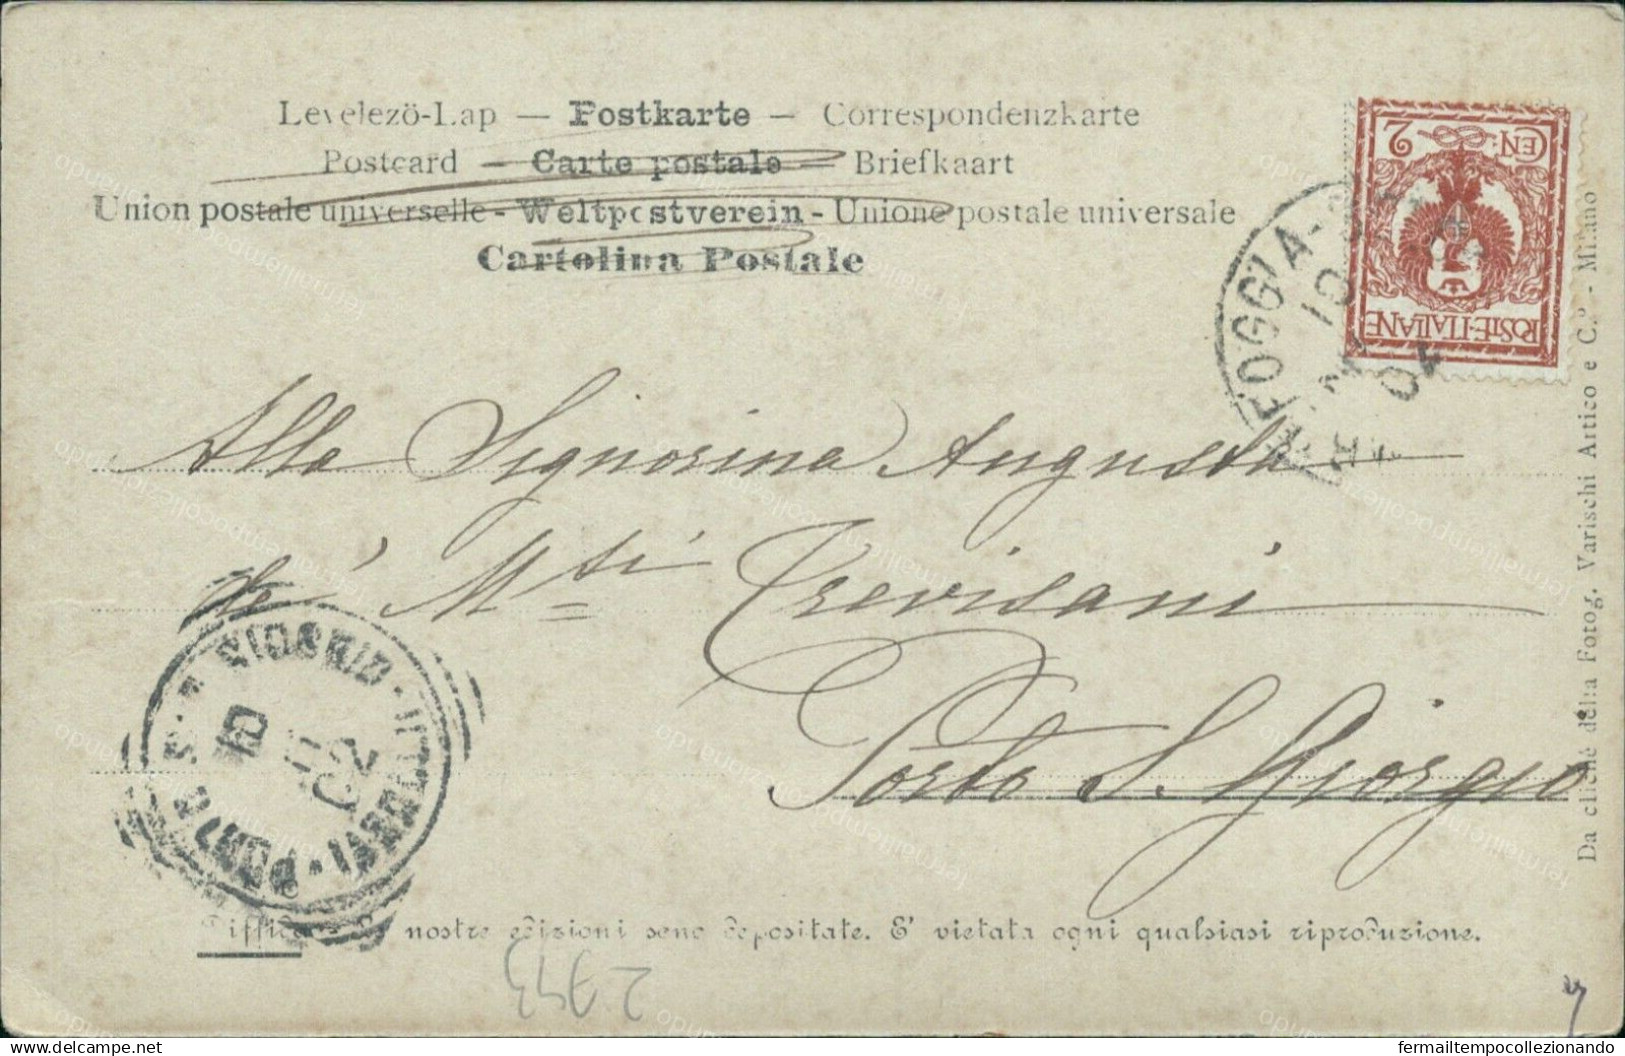 Levelezö-Lap — Postkarte — Correspondenzkarte
Postcard — Carte postale — Briefkaart
Union postale universelle - Weltpostverein - Unione postale universale
Cartolina Postale
CEN: 2
POSTE·ITALIANE
FOGGIA
10
04
Alla Signorina Augusta
de' M.si Trevisani
Porto S. Giorgio
PORTO S. GIORGIO
Diffida - Le nostre edizioni sono depositate. E' vietata ogni qualsiasi riproduzione.
Da cliché della Fotog. Varischi Artico e C.º - Milano
2943
www.delcampe.net
fermailtempocollezionando